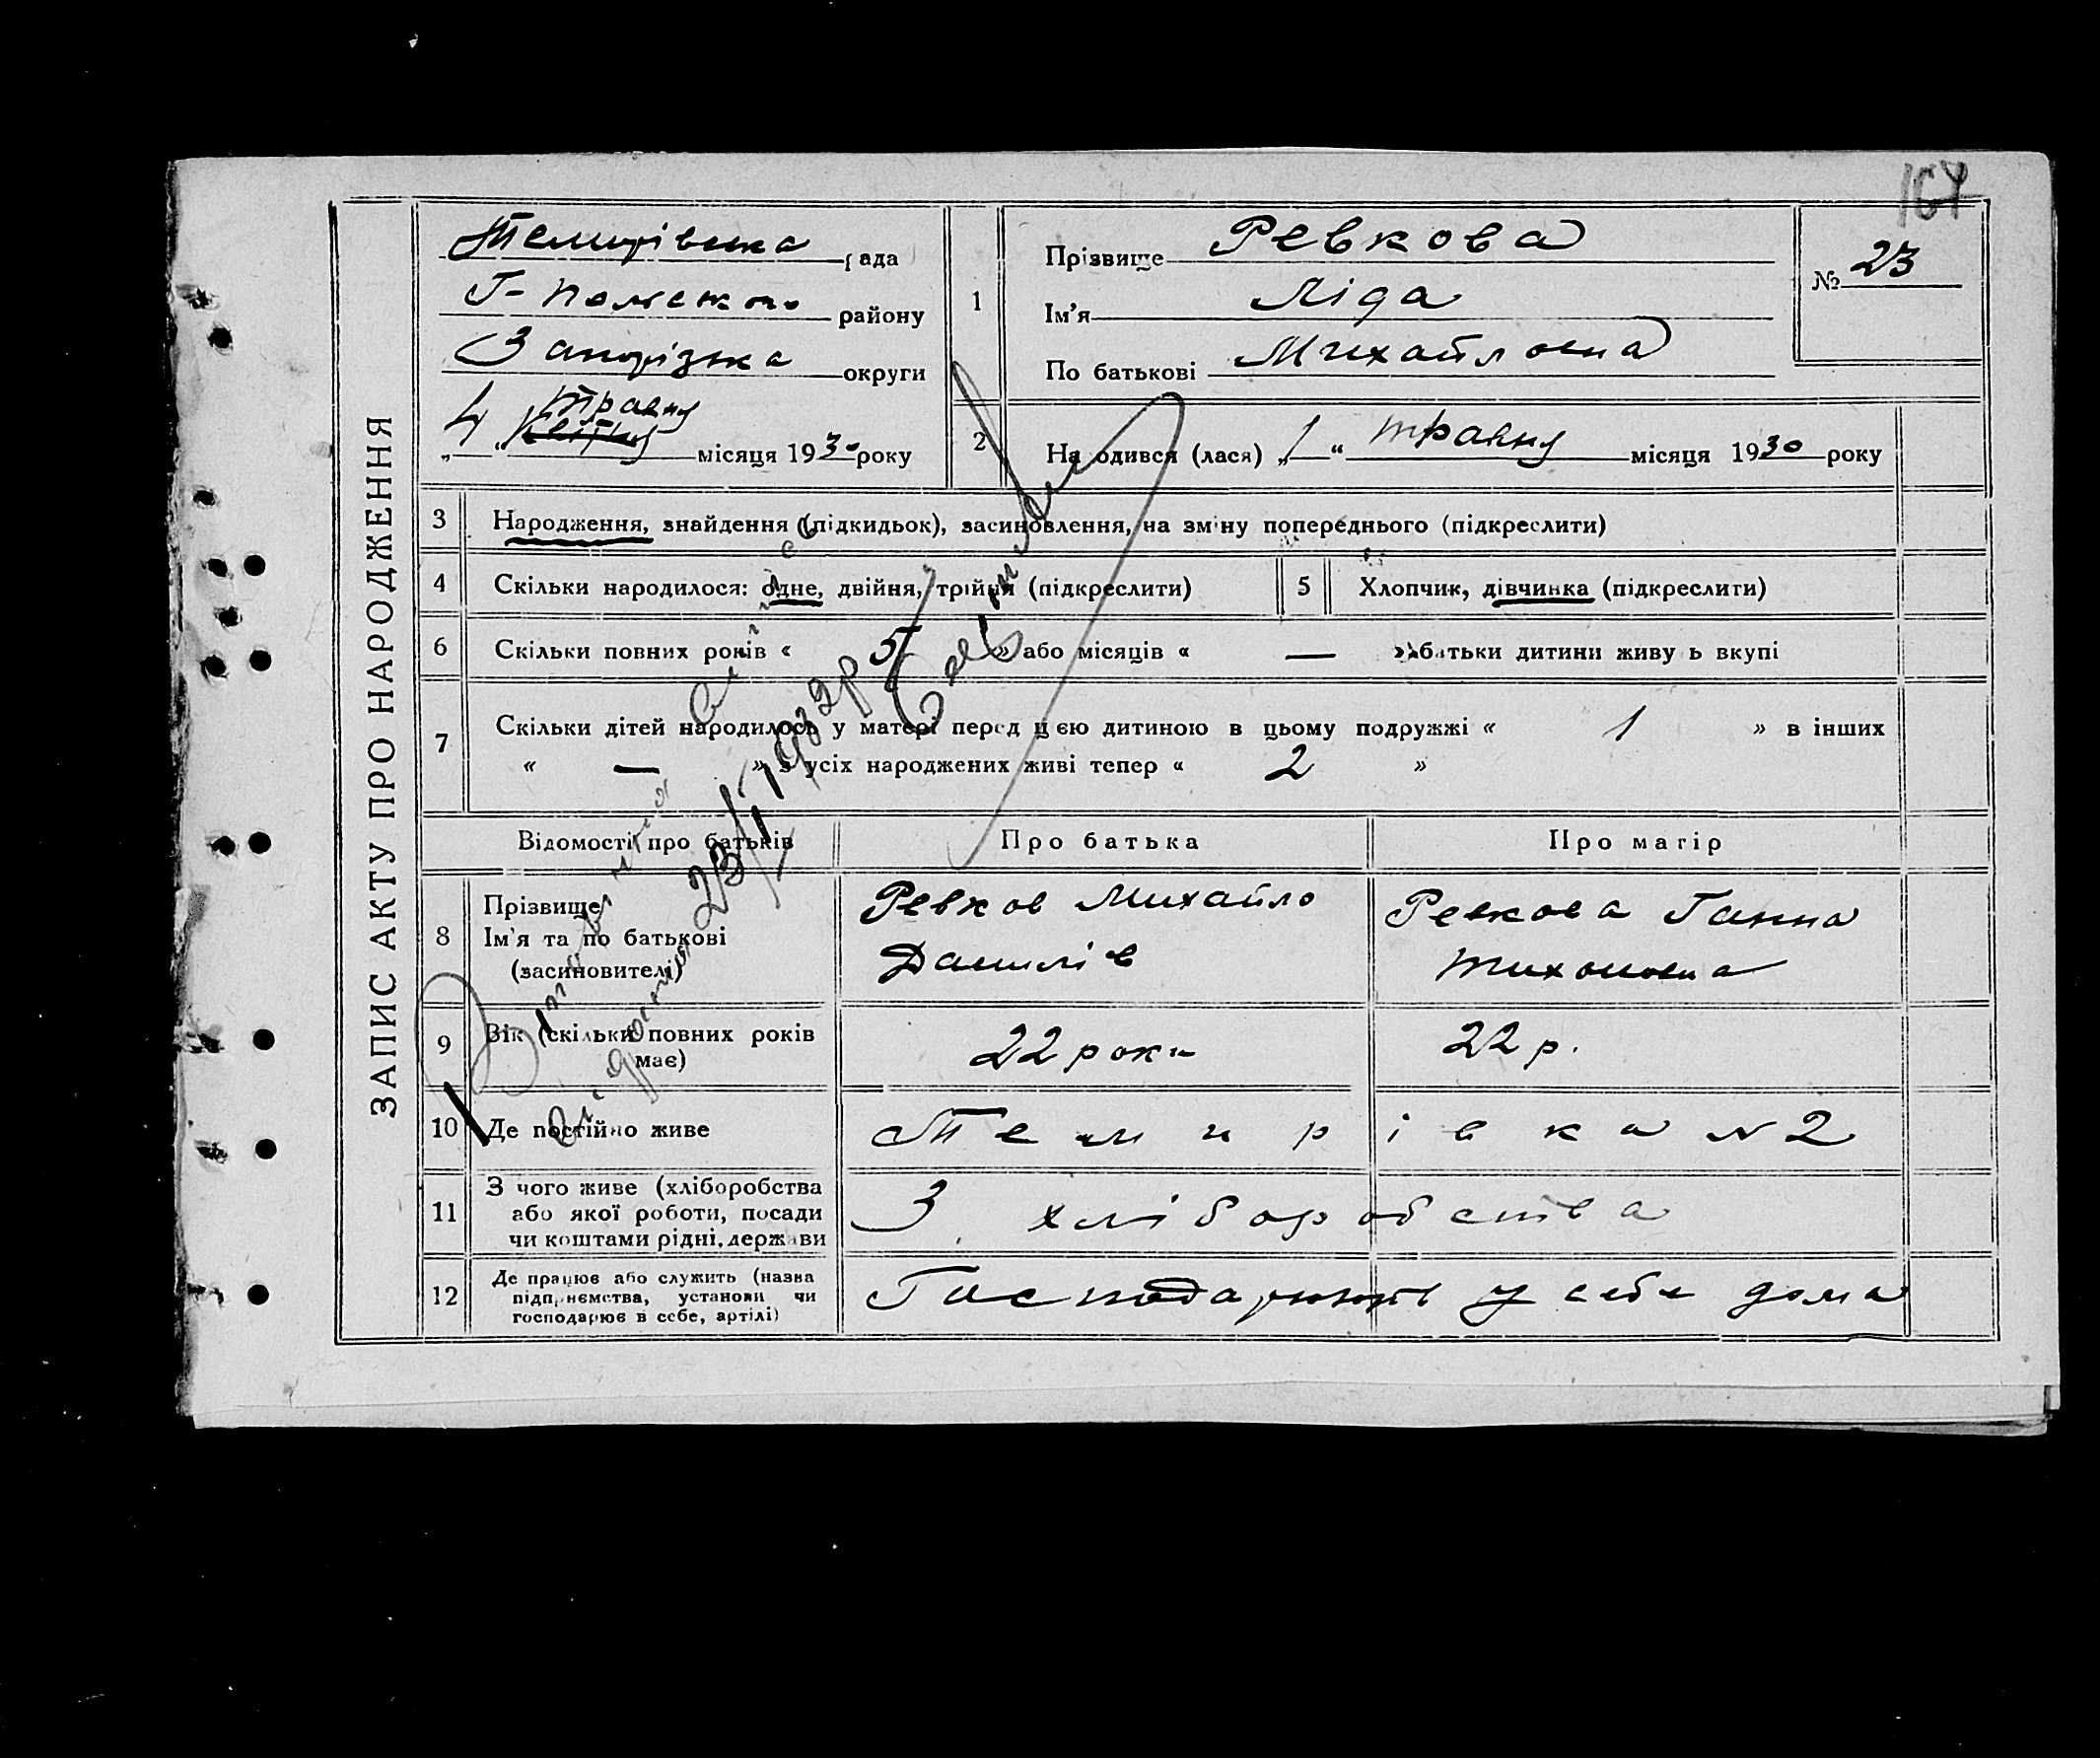 164
ЗАПИС АКТУ ПРО НАРОДЖЕННЯ
Темирівська рада
Г-Польського району
Запорізька округи
„4“ Травня місяця 1930 року
1
Прізвище Ревкова
Ім'я Ліда
По батькові Михайловна
№ 23
2
Народився (лася) „1“ травня місяця 1930 року
3 Народження, знайдення (підкидьок), засиновлення, на зміну попереднього (підкреслити)
4 Скільки народилося: одне, двійня, трійня (підкреслити)
5 Хлопчик, дівчинка (підкреслити)
6 Скільки повних років « 5 » або місяців « — » батьки дитини живуть вкупі
7 Скільки дітей народилось у матері перед цією дитиною в цьому подружжі « 1 » в інших
« — » з усіх народжених живі тепер « 2 »
Відомості про батьків
Про батька
Про матір
8 Прізвище
Ім'я та по батькові
(засиновителі)
Ревков Михайло
Данилів
Ревкова Ганна
Тихоновна
9 Вік (скільки повних років
має)
22 роки
22 р.
10 Де постійно живе
Темирівка №2
11 З чого живе (хліборобства
або якої роботи, посади
чи коштами рідні, держави
З хліборобства
12 Де працює або служить (назва
підприємства, установи чи
господарює в себе, артілі)
Господарюють у себе дома
23/I 1932 р